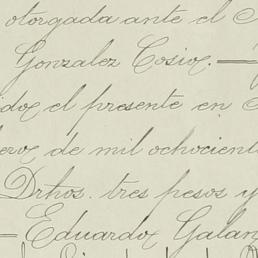 otorgada ante el
Gonzalez Cosio.—
el presente en
de mil ochocient
Drhos. tres pesos y
—Eduardo Galan